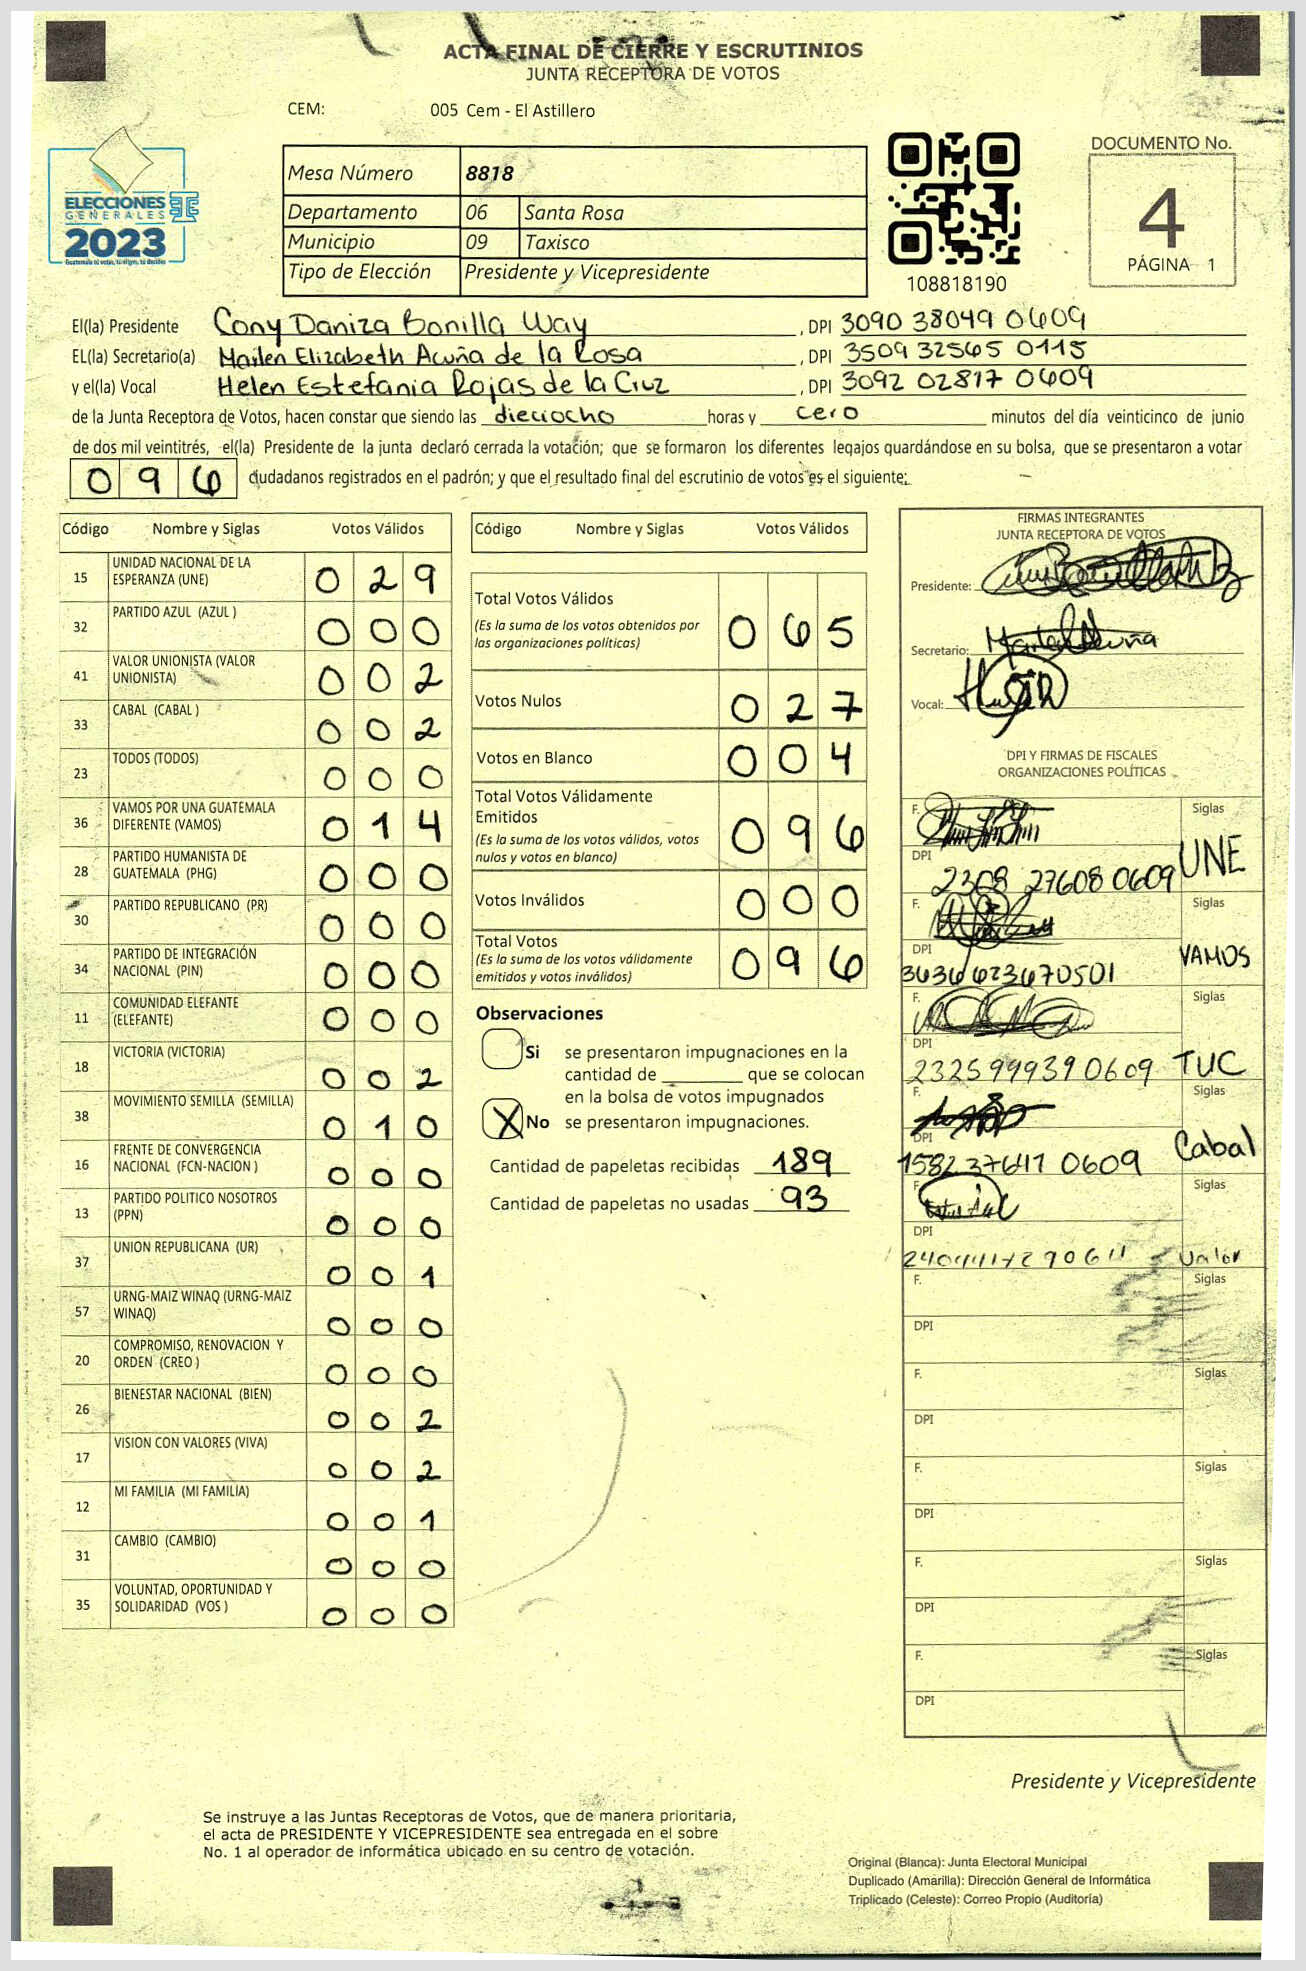 ACTA FINAL DE CIERRE Y ESCRUTINIOS
JUNTA RECEPTORA DE VOTOS
CEM: 005 Cem - El Astillero
ELECCIONES
GENERALES
2023
Mesa Número 8818
Departamento 06 Santa Rosa
Municipio 09 Taxisco
Tipo de Elección Presidente y Vicepresidente
108818190
DOCUMENTO No.
4
PÁGINA 1
El(la) Presidente Cony Daniza Bonilla Way, DPI 3090 38049 0609
EL(la) Secretario(a) Mailen Elizabeth Acuña de la Rosa, DPI 3509 32565 0115
y el(la) Vocal Helen Estefania Rojas de la Cruz, DPI 3092 02817 0609
de la Junta Receptora de Votos, hacen constar que siendo las dieciocho horas y cero minutos del día veinticinco de junio
de dos mil veintitrés, el(la) Presidente de la junta declaró cerrada la votación; que se formaron los diferentes legajos guardándose en su bolsa, que se presentaron a votar
096 ciudadanos registrados en el padrón; y que el resultado final del escrutinio de votos es el siguiente:
Código Nombre y Siglas Votos Válidos
15 UNIDAD NACIONAL DE LA ESPERANZA (UNE) 029
32 PARTIDO AZUL (AZUL ) 000
41 VALOR UNIONISTA (VALOR UNIONISTA) 002
33 CABAL (CABAL ) 002
23 TODOS (TODOS) 000
36 VAMOS POR UNA GUATEMALA DIFERENTE (VAMOS) 014
28 PARTIDO HUMANISTA DE GUATEMALA (PHG) 000
30 PARTIDO REPUBLICANO (PR) 000
34 PARTIDO DE INTEGRACIÓN NACIONAL (PIN) 000
11 COMUNIDAD ELEFANTE (ELEFANTE) 000
18 VICTORIA (VICTORIA) 002
38 MOVIMIENTO SEMILLA (SEMILLA) 010
16 FRENTE DE CONVERGENCIA NACIONAL (FCN-NACION ) 000
13 PARTIDO POLITICO NOSOTROS (PPN) 000
37 UNION REPUBLICANA (UR) 001
57 URNG-MAIZ WINAQ (URNG-MAIZ WINAQ) 000
20 COMPROMISO, RENOVACION Y ORDEN (CREO ) 000
26 BIENESTAR NACIONAL (BIEN) 002
17 VISION CON VALORES (VIVA) 002
12 MI FAMILIA (MI FAMILIA) 001
31 CAMBIO (CAMBIO) 000
35 VOLUNTAD, OPORTUNIDAD Y SOLIDARIDAD (VOS ) 000
Código Nombre y Siglas Votos Válidos
Total Votos Válidos 065
(Es la suma de los votos obtenidos por
las organizaciones políticas)
Votos Nulos 027
Votos en Blanco 004
Total Votos Válidamente
Emitidos 096
(Es la suma de los votos válidos, votos
nulos y votos en blanco)
Votos Inválidos 000
Total Votos 096
(Es la suma de los votos válidamente
emitidos y votos inválidos)
Observaciones
Si se presentaron impugnaciones en la
cantidad de ________ que se colocan
en la bolsa de votos impugnados
X No se presentaron impugnaciones.
Cantidad de papeletas recibidas 189
Cantidad de papeletas no usadas 93
FIRMAS INTEGRANTES
JUNTA RECEPTORA DE VOTOS
Presidente:
Secretario:
Vocal:
DPI Y FIRMAS DE FISCALES
ORGANIZACIONES POLÍTICAS
F. Siglas
DPI 2308 27608 0609 UNE
F. Siglas
DPI 3636623670501 VAMOS
F. Siglas
DPI 2325999390609 TUC
F. Siglas
DPI 1582 37647 0609 Cabal
F. Siglas
DPI Valor
F. Siglas
DPI
F. Siglas
DPI
F. Siglas
DPI
F. Siglas
DPI
F. Siglas
DPI
Presidente y Vicepresidente
Se instruye a las Juntas Receptoras de Votos, que de manera prioritaria,
el acta de PRESIDENTE Y VICEPRESIDENTE sea entregada en el sobre
No. 1 al operador de informática ubicado en su centro de votación.
Original (Blanca): Junta Electoral Municipal
Duplicado (Amarilla): Dirección General de Informática
Triplicado (Celeste): Correo Propio (Auditoría)